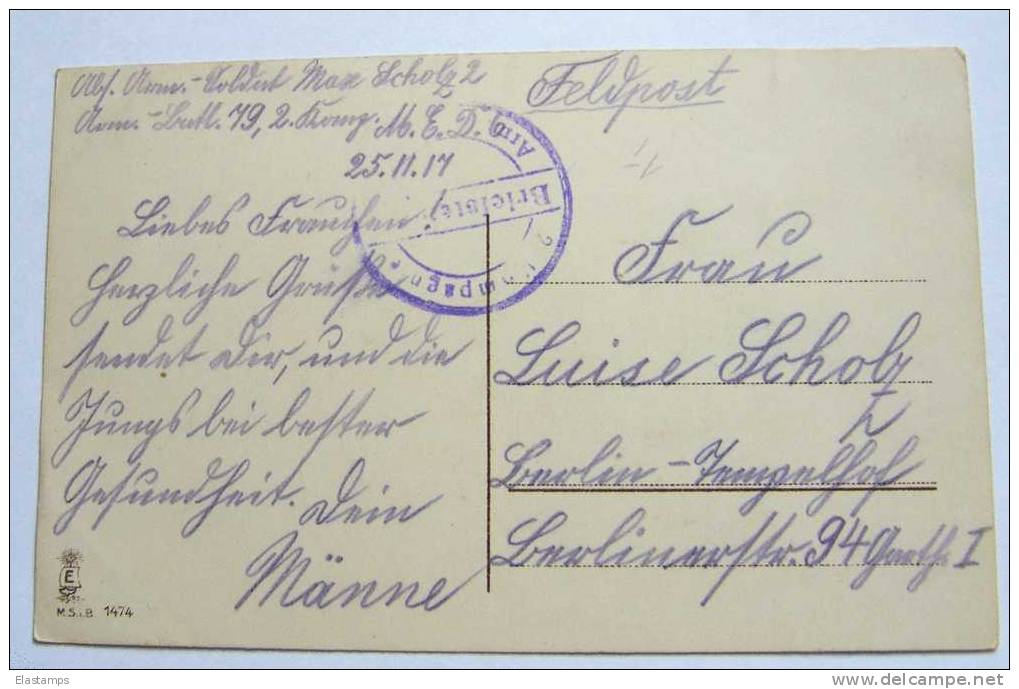 Abs. Arm.-Soldat Max Scholz 2
Arm.-Batl. 79, 2. Komp. M. E. D.
25.11.17
Feldpost
Liebes Frauchen!
Herzliche Grüße
sendet Dir, und die
Jungs bei bester
Gesundheit. Dein
Männe
Frau
Luise Scholz
Berlin-Tempelhof
Berlinerstr. 94 Garth. I
Arm
Briefste
2. Kompagnie
E
M.S.i.B. 1474
Elastamps
delcampe.net